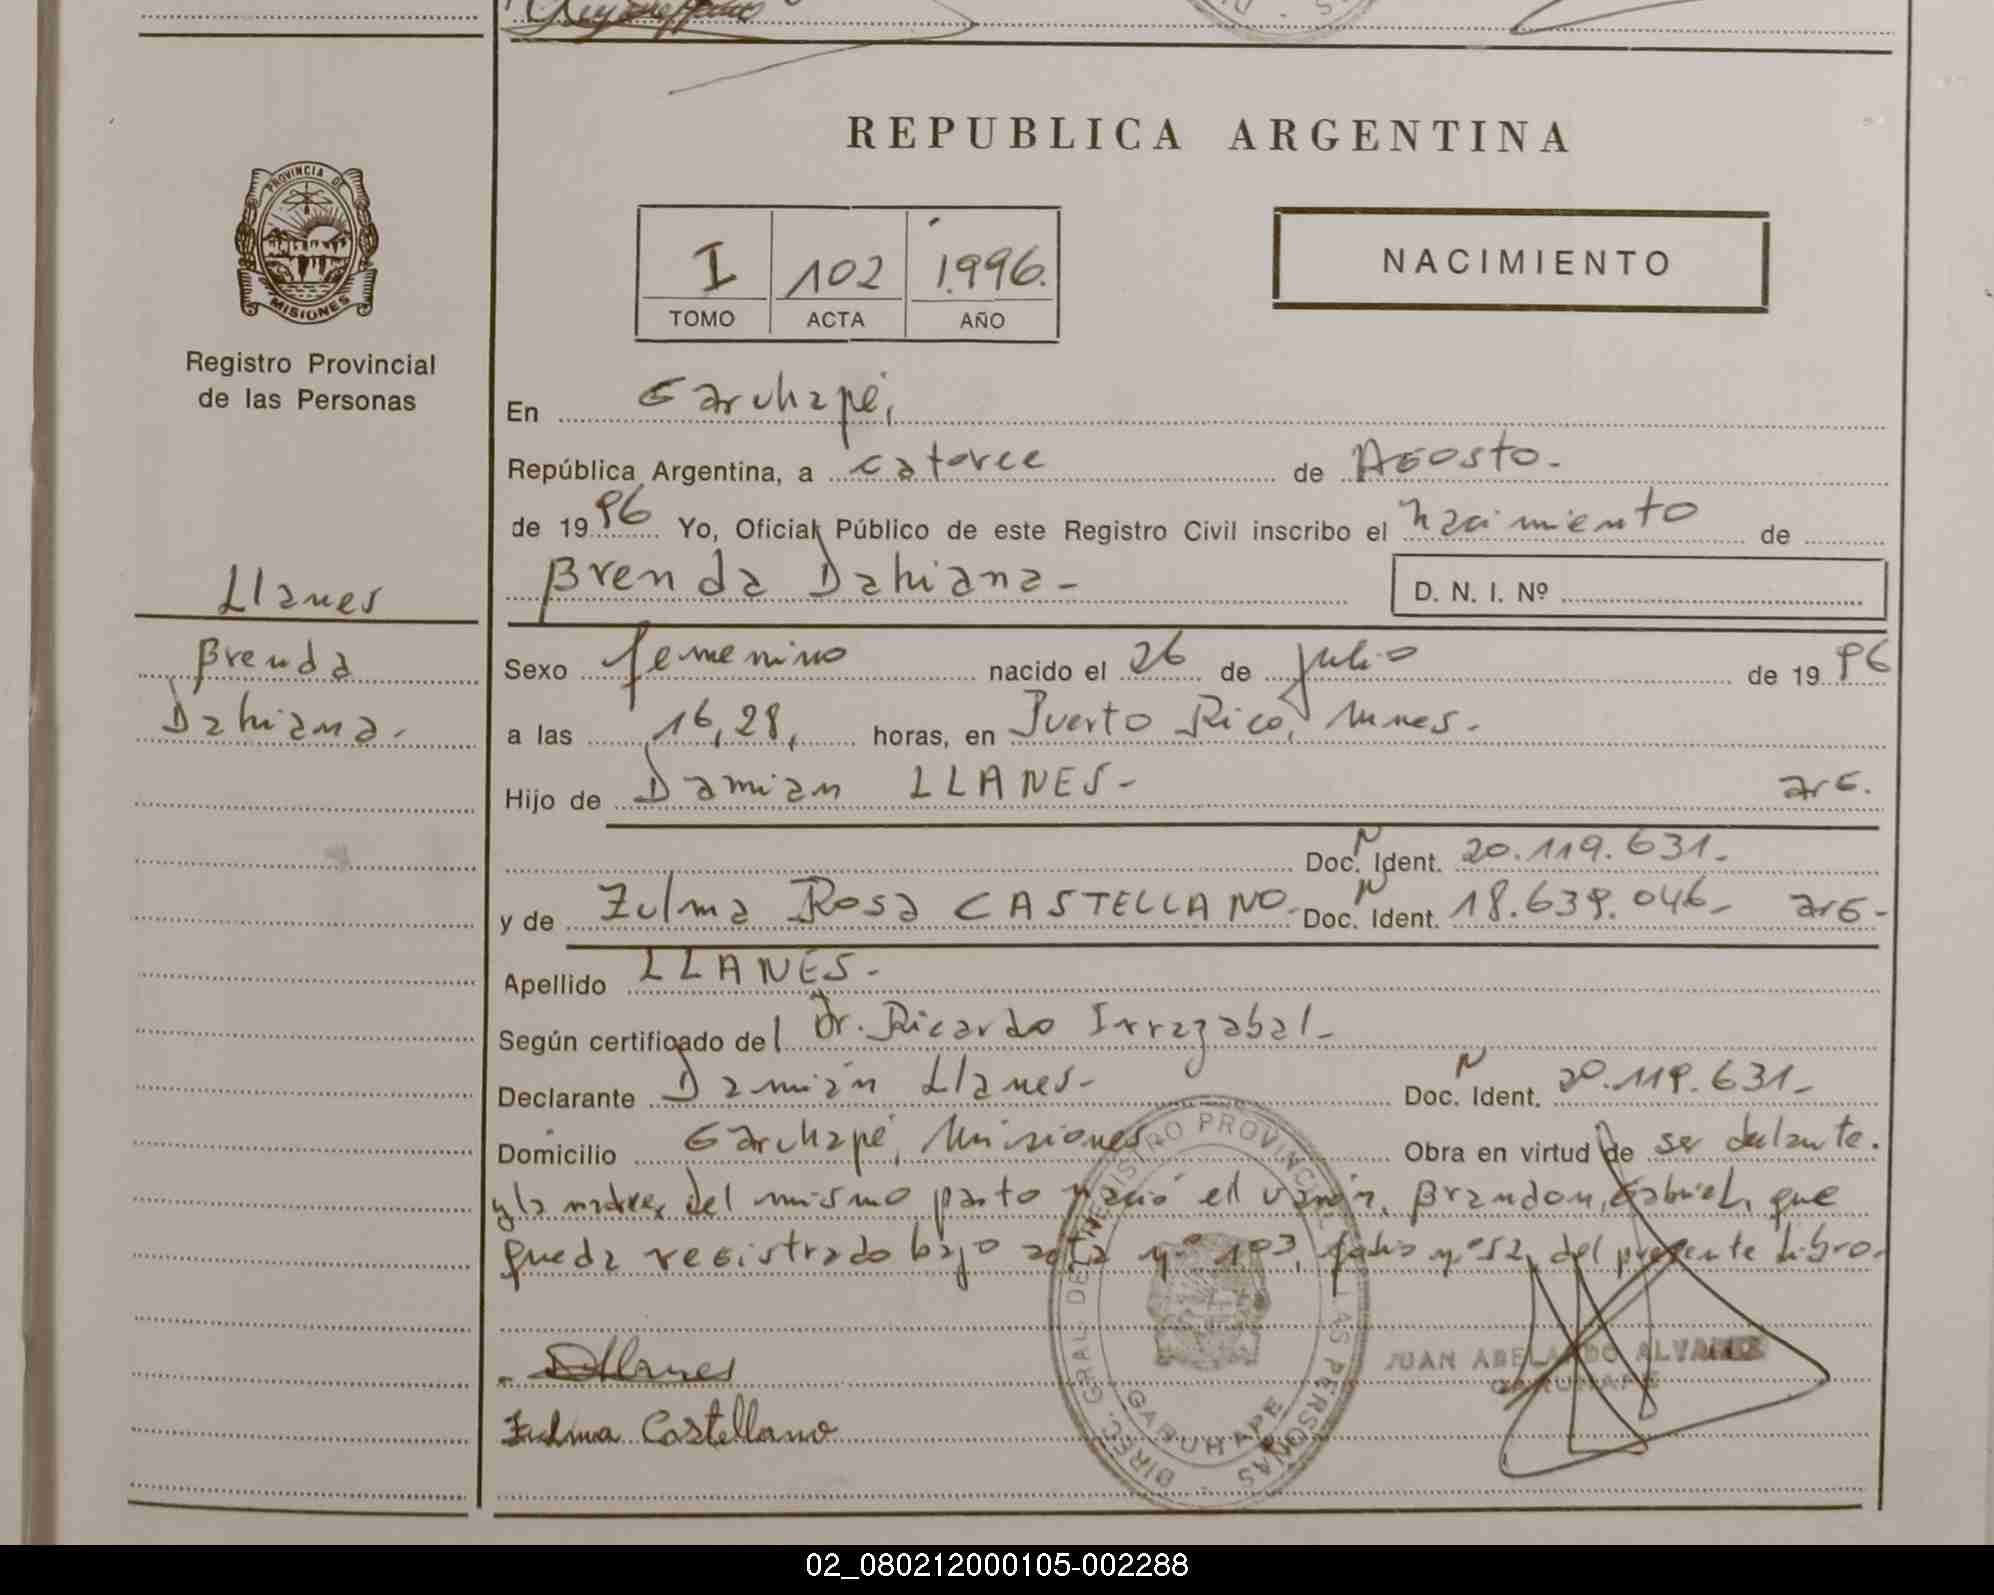 REPUBLICA ARGENTINA
PROVINCIA DE
MISIONES
Registro Provincial
de las Personas
I 102 1.996.
TOMO ACTA AÑO
NACIMIENTO
En Garuhapé,
República Argentina, a catorce de Agosto.
de 1996 Yo, Oficial Público de este Registro Civil inscribo el nacimiento de
Brenda Dahiana- D. N. I. Nº
Llanes
Brenda
Dahiana.
Sexo femenino nacido el 26 de julio de 1996
a las 16,28, horas, en Puerto Rico, Mnes.
Hijo de Damian LLANES- arg.
Doc. N Ident. 20.119.631.
y de Zulma Rosa CASTELLANO. Doc. N Ident. 18.639.046- arg-
Apellido LLANES-
Según certificado del Dr. Ricardo Irrazabal-
Declarante Damián Llanes- Doc. N Ident. 20.119.631-
Domicilio Garuhapé, Misiones Obra en virtud de ser
y la madre, del mismo parto nació el varón, Brandon, Gabriel, que
queda registrado bajo acta nº 103, folio nº 52, del presente libro.
DLlanes
Zulma Castellano
DIREC. GRAL. DEL REGISTRO PROVINCIAL DE LAS PERSONAS
GARUHAPE
JUAN ABELARDO ALVAREZ
GARUHAPE
02_080212000105-002288